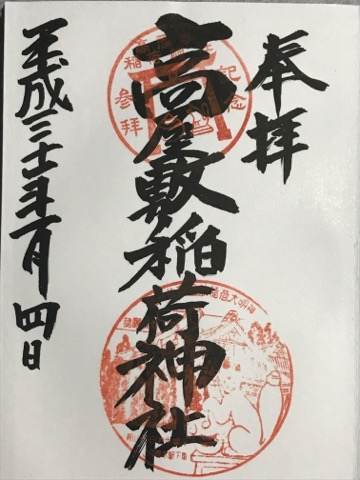 奉拝
高屋敷稲荷神社
平成三十年一月四日
参拝
記念